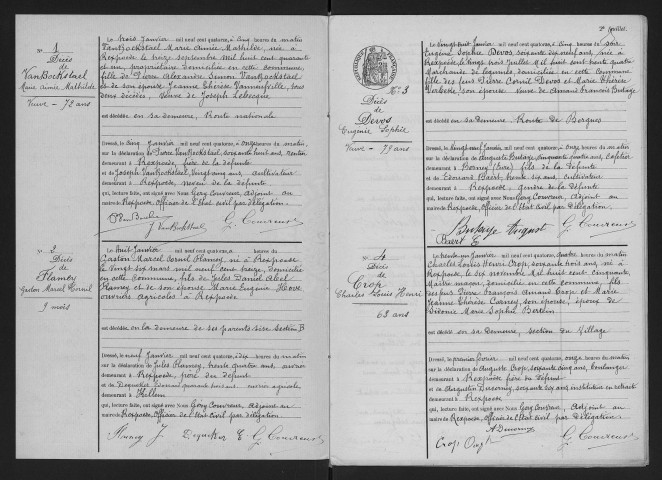 N° 1
Décès
de
VanBockstael
Marie Aimée Mathilde
Veuve - 72 ans
Le trois Janvier mil neuf cent quatorze, à cinq heures du matin
VanBockstael Marie Aimée Mathilde, née à
Rexpoëde le treize septembre mil huit cent quarante
et un, propriétaire domiciliée en cette commune,
fille de Pierre Alexandre Simon VanBockstael
et de son épouse Jeanne Thérèse
deux décédés, Veuve de Joseph Lebecque
est décédée en sa demeure, Route nationale
Dressé, le cinq Janvier mil neuf cent quatorze, à onze heures du matin
sur la déclaration de Pierre VanBockstael, soixante huit ans, rentier
demeurant à Rexpoëde, frère de la défunte
et de Joseph VanBockstael, vingt cinq ans, cultivateur
demeurant à Rexpoëde, neveu de la défunte
qui, lecture faite, ont signé avec Nous Géry Couvreur, Adjoint au
maire de Rexpoëde, Officier de l'Etat civil par délégation.
J VanBockstael G. Couvreur
N° 2
Décès
de
Flamey
Gaston Marcel Cornil
9 mois
Le huit Janvier mil neuf cent quatorze, à heures du
Gaston Marcel Cornil Flamey né à Rexpoëde
le vingt six mars mil neuf cent treize, domicilié
en cette commune, fils de Jules Daniel Abel
Flamey et de son épouse Marie Eugénie
ouvriers agricoles à Rexpoëde
est décédé en la demeure de ses parents sise Section B
Dressé, le neuf Janvier mil neuf cent quatorze, à dix heures du matin
sur la déclaration de Jules Flamey, trente quatre ans, ouvrier
demeurant à Rexpoëde, père du défunt
et de Dequeker quarante trois ans, ouvrier agricole,
demeurant à Killem
qui, lecture faite, ont signé avec Nous Géry Couvreur, Adjoint au
maire de Rexpoëde, Officier de l'Etat civil par délégation
Flamey J Dequeker E G. Couvreur
2e feuillet.
N° 3
Décès
de
Devos
Eugénie Sophie
Veuve - 79 ans
Le vingt huit Janvier mil neuf cent quatorze, à cinq heures du soir
Eugénie Sophie Devos, soixante dix neuf ans, née à
Rexpoëde le vingt trois Juillet mil huit cent trente quatre
Marchande de légumes, domiciliée en cette commune
fille des feus Pierre Cornil Devos et Marie Thérèse
Verbeke, son épouse Veuve de Amand François Butaye
est décédée en sa demeure Route de Bergues
Dressé, le vingt neuf Janvier mil neuf cent quatorze, à onze heures du matin
sur la déclaration de Auguste Butaye, cinquante quatre ans, Cafetier
demeurant à Bornay (Eure) fils de la défunte
et de Edouard Baert, trente six ans, cultivateur
demeurant à Rexpoëde, gendre de la défunte
qui, lecture faite, ont signé avec Nous Géry Couvreur, Adjoint au
maire de Rexpoëde, Officier de l'Etat civil par délégation.
Butaye August G. Couvreur
Baert E
N° 4
Décès
de
Crop
Charles Louis Henri
63 ans
Le trente-un Janvier mil neuf cent quatorze, à quatre heures du matin
Charles Louis Henri Crop, soixante trois ans, né à
Rexpoëde, le six novembre mil huit cent cinquante,
Maître maçon, domicilié en cette commune, fils
des feus Pierre François Amand Crop et Marie
Jeanne Thérèse Carney, son épouse; époux de
Sidonie Marie Sophie Bertein
est décédé en sa demeure, section du Village
Dressé, le premier Février mil neuf cent quatorze, à onze heures du matin
sur la déclaration de Auguste Crop, soixante cinq ans, boulanger
demeurant à Rexpoëde frère du défunt
et de Augustin Ducornoy, soixante six ans, instituteur en retraite
demeurant à Rexpoëde
qui, lecture faite, ont signé avec Nous Géry Couvreur, Adjoint au
maire de Rexpoëde, officier de l'Etat civil par délégation
A Ducornoy
Crop Augt G. Couvreur